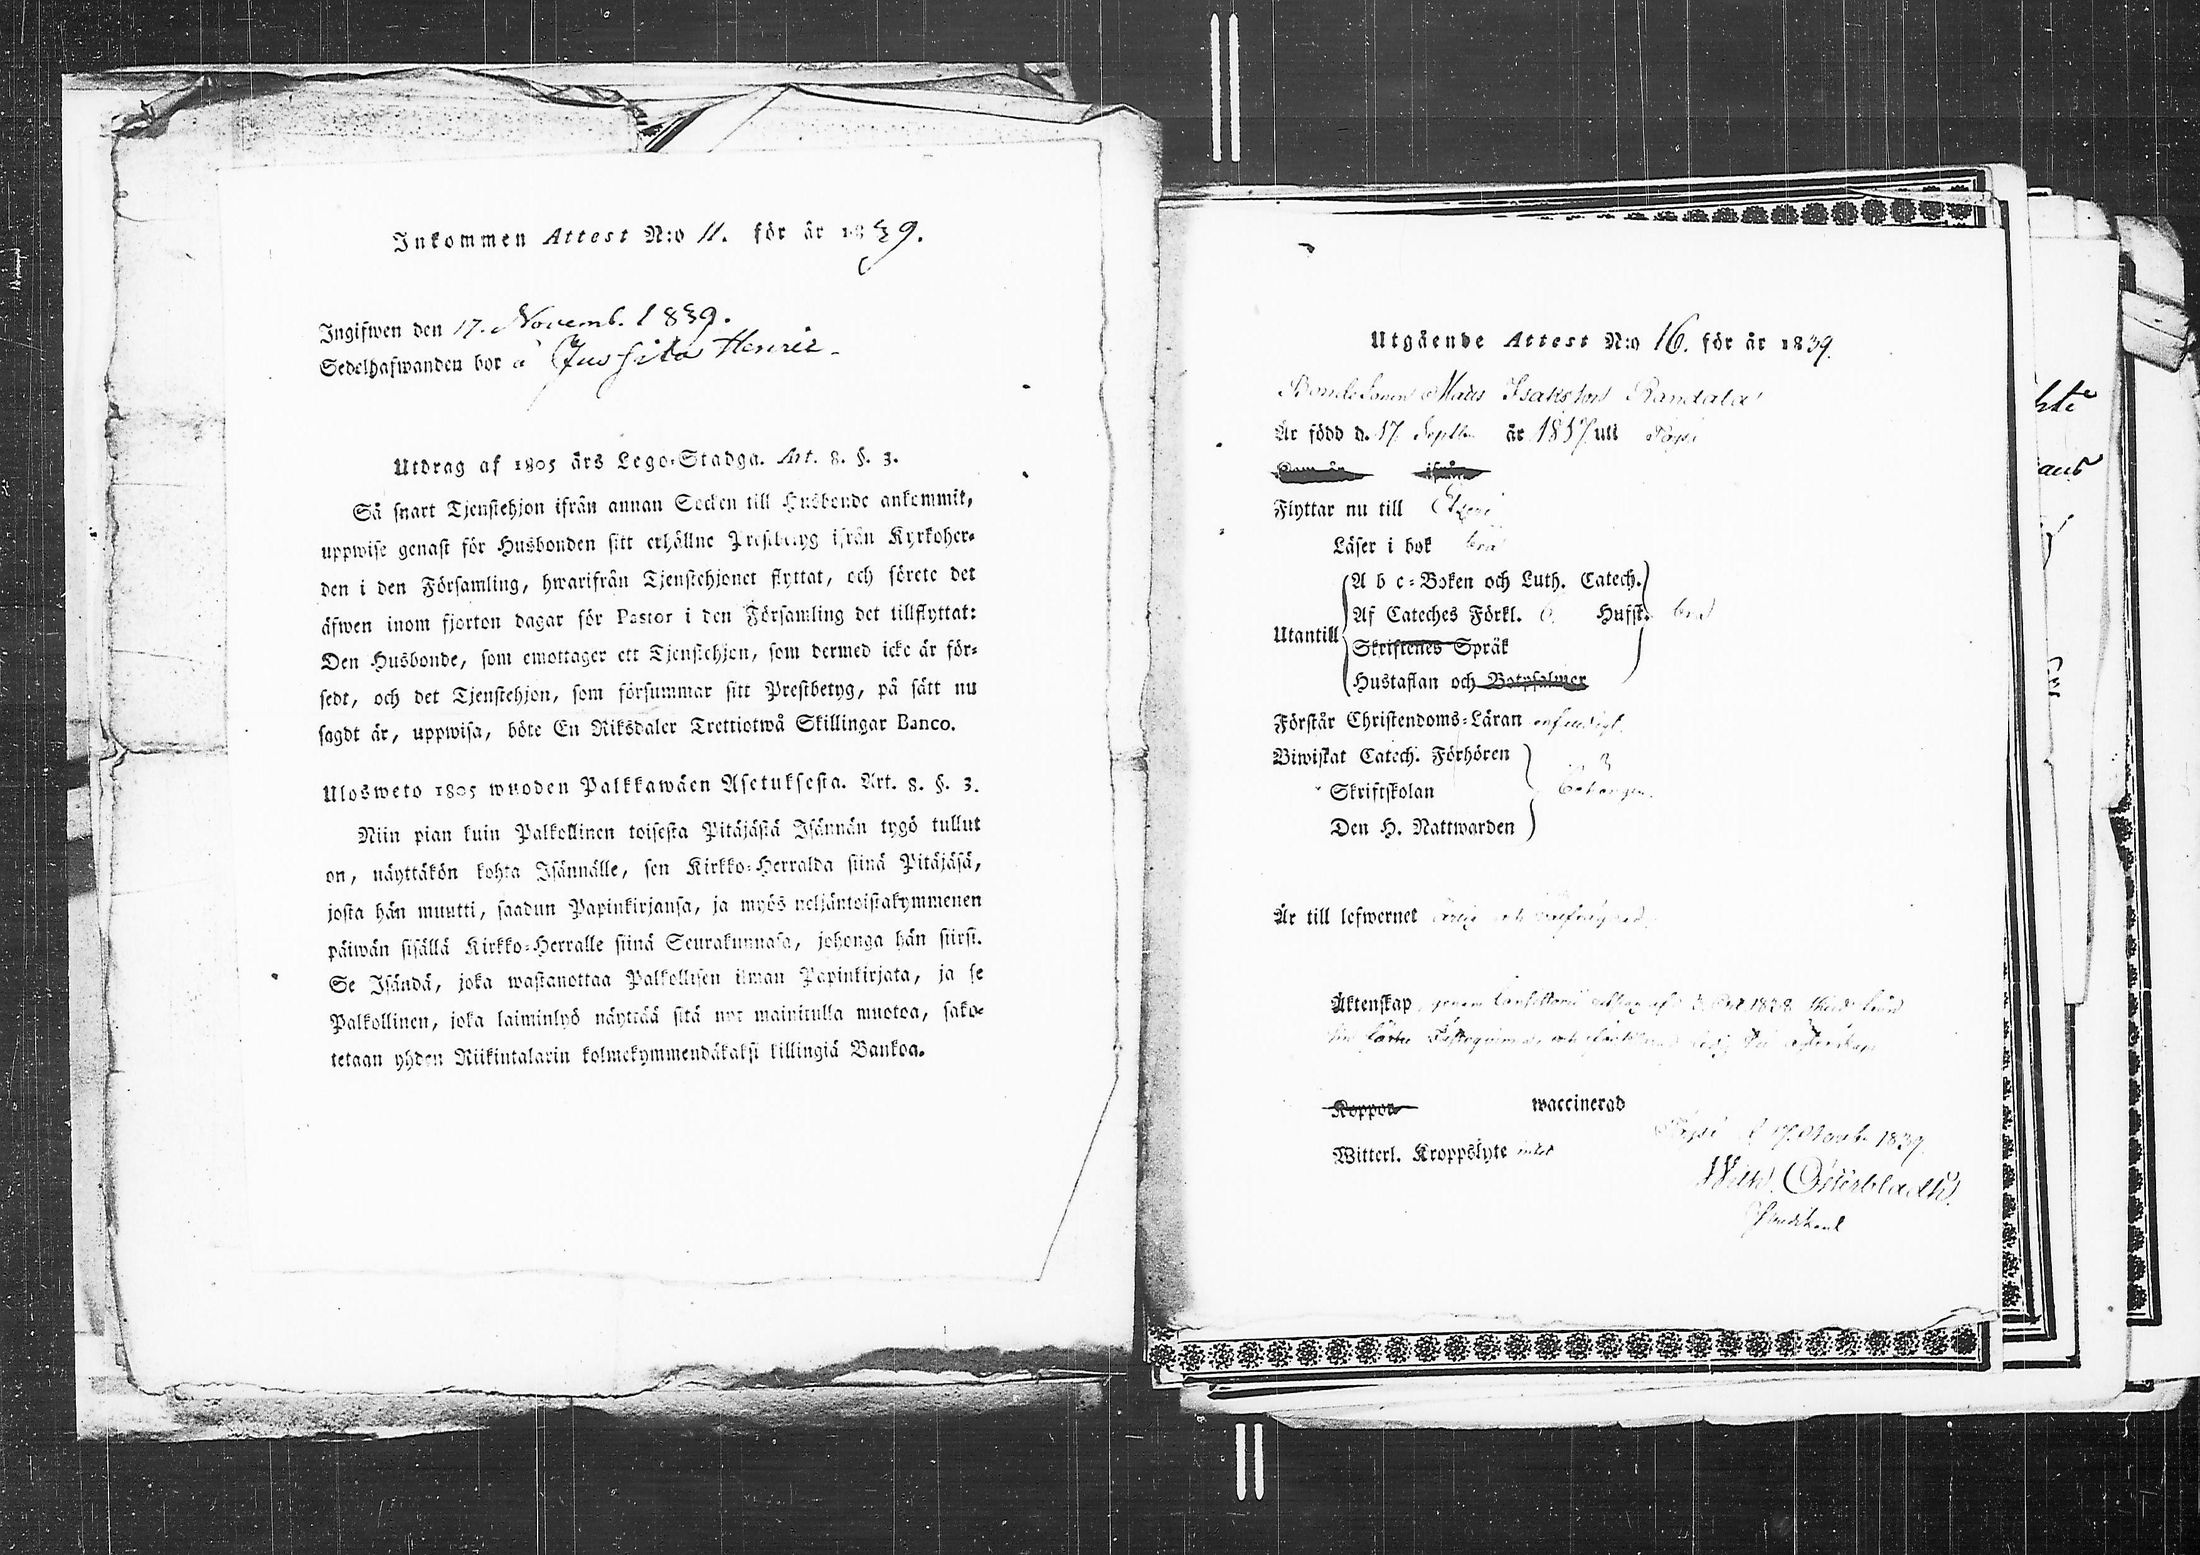 Inkommen Attest N:o 11. för år 1839.
Ingifwen den 17. Novemb. 1839.
Sedelhafwanden bor å Jussila Henric
Utdrag af 1805 års Lego-Stadga. Art. 8. §. 3.
Så snart Tjenstehjon ifrån annan Socken till Husbonde ankommit,
uppwise genast för Husbonden sitt erhållne Prestbetyg ifrån Kyrkoher-
den i den Församling, hwarifrån Tjenstehjonet flyttat, och förete det
äfwen inom fjorton dagar för Pastor i den Församling det tillflyttat:
Den Husbonde, som emottager ett Tjenstehjon, som dermed icke är för-
sedt, och det Tjenstehjon, som försummar sitt Prestbetyg, på sätt nu
sagdt är, uppwisa, böte En Riksdaler Trettiotwå Skillingar Banco.
Ulosweto 1805 wuoden Palkkawäen Asetuksesta. Art. 8. §. 3.
Niin pian kuin Palkollinen toisesta Pitäjästä Isännän tygö tullut
on, näyttäkön kohta Isännälle, sen Kirkko-Herralda siinä Pitäjäsä,
josta hän muutti, saadun Papinkirjansa, ja myös neljäntoistakymmenen
päiwän sisällä Kirkko-Herralle siinä Seurakunnasa, johonga hän siirsi.
Se Isändä, joka wastanottaa Palkollisen ilman Papinkirjata, ja se
Palkollinen, joka laiminlyö näyttää sitä nyt mainitulla muotoa, sako-
tetaan yhden Riikintalarin kolmekymmendäkaksi killingiä Bankoa.
Utgående Attest N:o 16. för år 1839.
Bondesonen Matts Isaksson Randala
Är född d. 17 Septbr år 1817 uti
Flyttar nu till Etseri
Läser i bok bra
A b c-Boken och Luth. Catech.
Af Cateches Förkl. Husst. bra
Utantill
Skriftenes Språk
Hustaflan och Botpsalmer
Förstår Christendoms-Läran enfaldigt
Biwistat Catech. Förhören
Skriftskolan
Den H. Nattwarden
Är till lefwernet ärlig och
Äktenskap, genom
Koppor waccinerad
d. 17 Novemb. 1839.
Witterl. Kroppslyte intet
Wilh. Österbladh